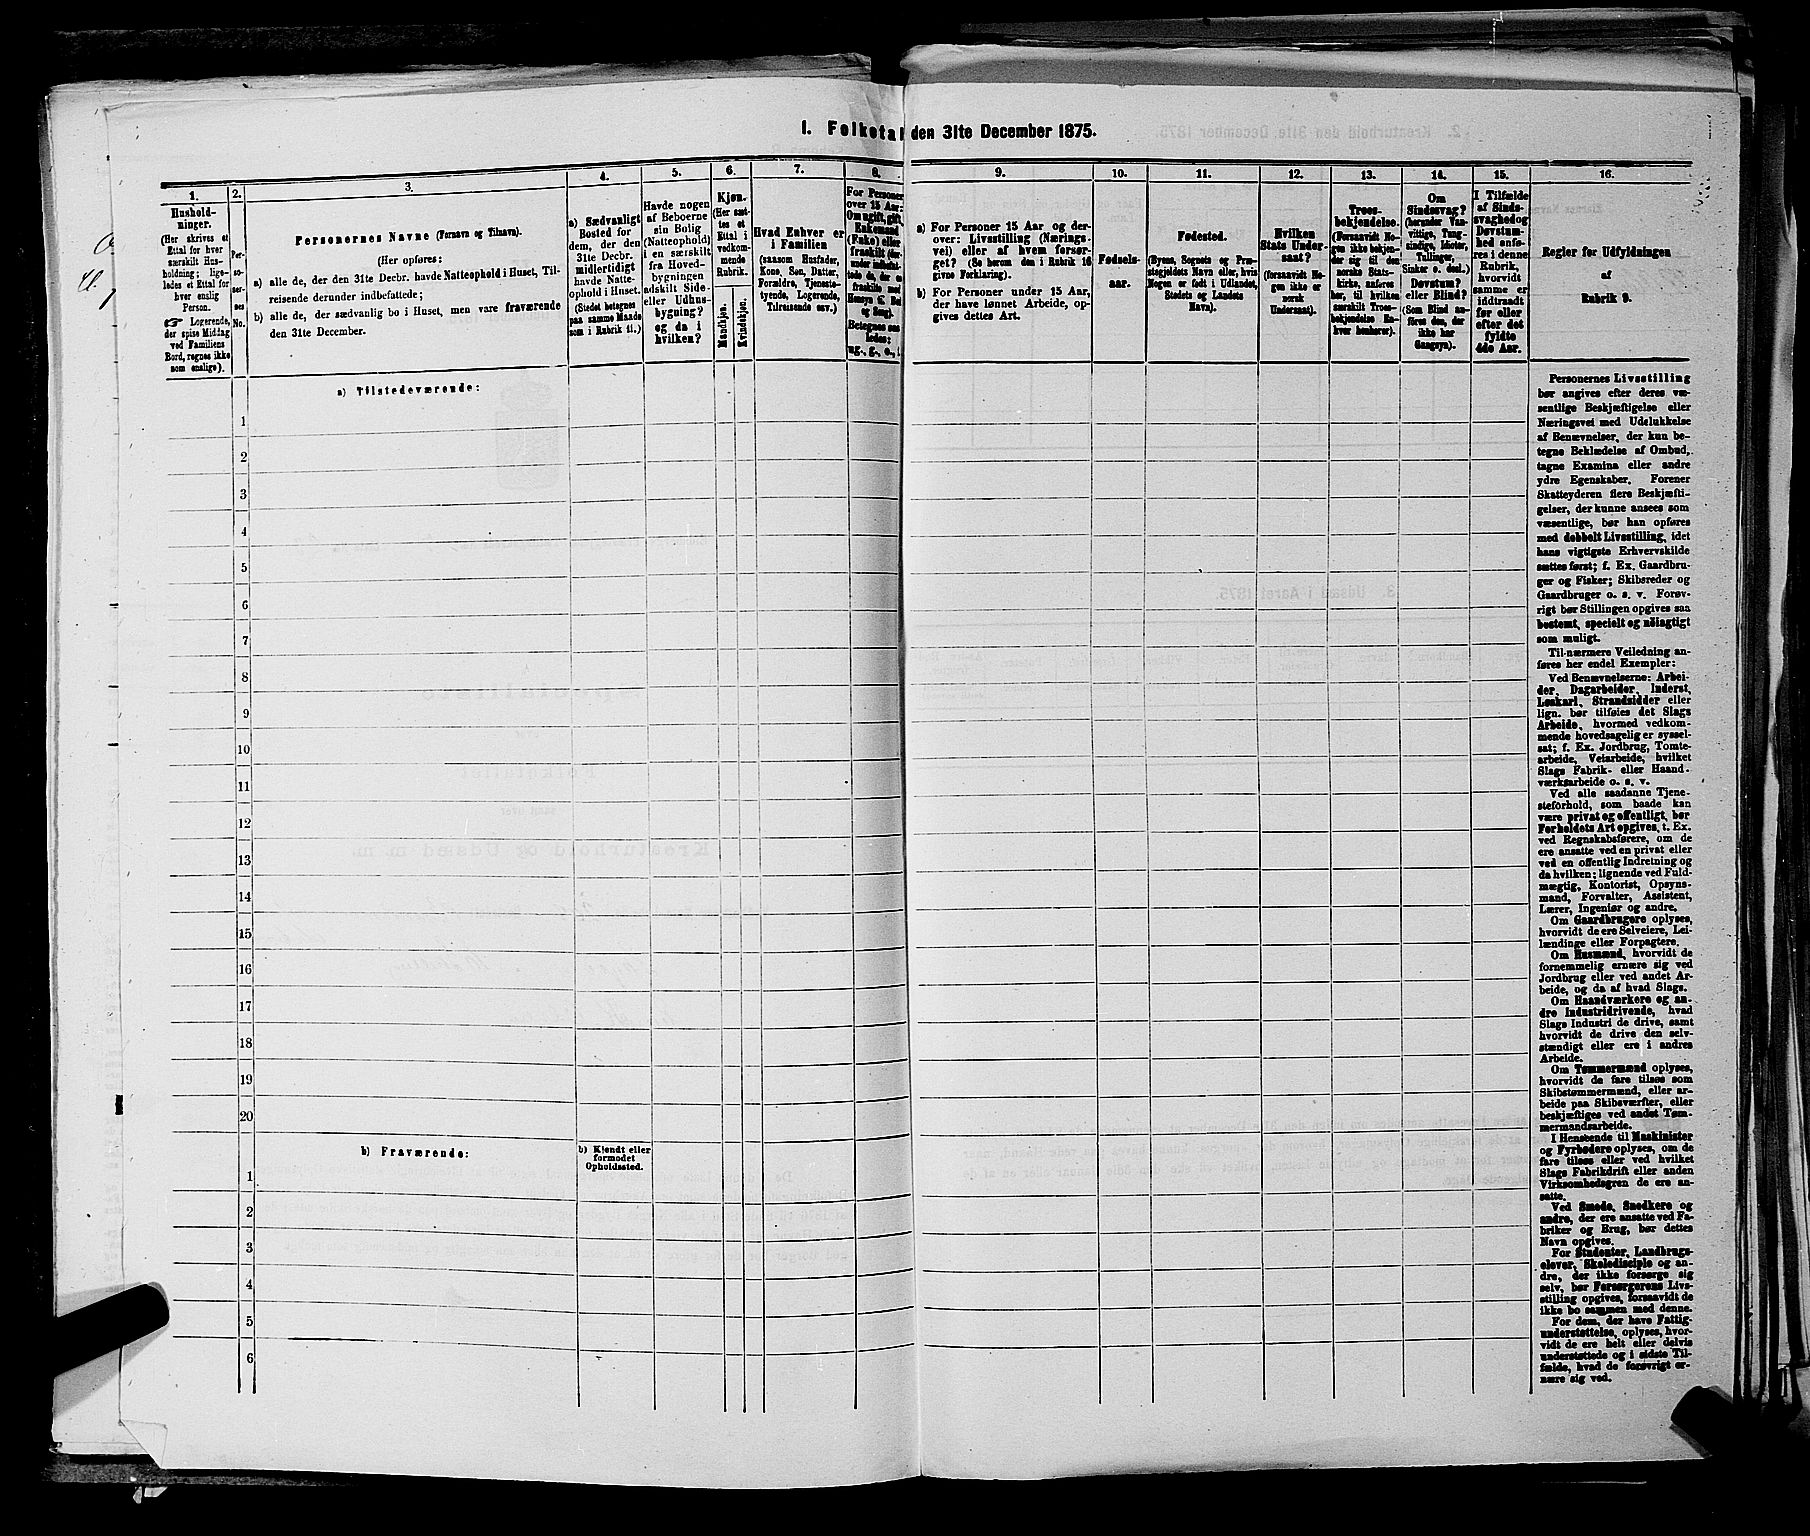 1. Folketal den 31te December 1875.
1.
Hushold-
ninger.
(Her skrives et
Ettal for hver
særskilt Hus-
holdning; lige-
ledes et Ettal for
hver enslig
Person.
☞ Logerende,
der spise Middag
ved Familiens
Bord, regnes ikke
som enslige).
2.
Per-
so-
ner-
nes
No.
3.
Personernes Navne (Fornavn og Tilnavn).
(Her opføres:
a) alle de, der den 31te Decbr. havde Natteophold i Huset, Til-
reisende derunder indbefattede;
b) alle de, der sædvanlig bo i Huset, men vare fraværende
den 31te December.
4.
a) Sædvanligt
Bosted for
dem, der den
31te Decbr.
midlertidigt
havde Natte-
ophold i Huset.
(Stedet betegnes
paa samme Maade
som i Rubrik 11.)
5.
Havde nogen
af Beboerne
sin Bolig
(Natteophold)
i en særskilt
fra Hoved-
bygningen
adskilt Side-
eller Udhus-
bygning?
og da i
hvilken?
6.
Kjøn.
(Her sæt-
tes et
Ettal i
vedkom-
mende
Rubrik.
Mandkjøn.
Kvindkjøn.
7.
Hvad Enhver er
i Familien
(saasom Husfader,
Kone, Søn, Datter,
Forældre, Tjeneste-
tyende, Logerende,
Tilreisende osv.)
8.
For Personer
over 15 Aar:
Om ugift, gift,
Enkemand
(Enke) eller
fraskilt (der-
Betegnes saa-
ledes:
ug., g., e.,
9.
a) For Personer 15 Aar og der-
over: Livsstilling (Nærings-
vei) eller af hvem forsør-
get? (Se herom den i Rubrik 16
givne Forklaring).
b) For Personer under 15 Aar,
der have lønnet Arbeide, op-
gives dettes Art.
10.
Fødsels-
aar.
11.
Fødested.
(Byens, Sognets og Præ-
stegjeldets Navn eller, hvis
Nogen er født i Udlandet,
Stedets og Landets
Navn).
12.
Hvilken
Stats Under-
saat?
(forsaavidt No-
gen ikke er
norsk
Undersaat).
13.
Troes-
bekjendelse.
(Forsaavidt No-
gen ikke bekjen-
der sig til den
norske Stats-
kirke, anføres
her, til hvilken
særskilt Troes-
bekjendelse En-
hver henhører).
14.
Om
Sindssvag?
(herunder Van-
vittige, Tung-
sindige, Idioter,
Tullinger,
Sinker o. desl.)
Døvstum?
eller Blind?
(Som Blind an-
føres den, der
ikke har
Gangsyn).
15.
I Tilfælde
af Sinds-
svaghed og
Døvstum-
hed anfø-
res i denne
Rubrik,
hvorvidt
samme er
indtraadt
før eller
efter det
fyldte
4de Aar.
16.
Regler for Udfyldningen
af
Rubrik 9.
a) Tilstedeværende:
1
2
3
4
5
6
7
8
9
10
11
12
13
14
15
16
17
18
19
20
b) Fraværende:
b) Kjendt eller
formodet
Opholdssted.
1
2
3
4
5
6
Personernes Livsstilling
bør angives efter deres væ-
sentlige Beskjæftigelse eller
Næringsvei med Udelukkelse
af Benævnelser, der kun be-
tegne Beklædelse af Ombud,
tagne Examina eller andre
ydre Egenskaber. Forener
Skatteyderen flere Beskjæfti-
gelser, der kunne ansees som
væsentlige, bør han opføres
med dobbelt Livsstilling, idet
hans vigtigste Erhvervskilde
sættes først; f. Ex. Gaardbru-
ger og Fisker; Skibsreder og
Gaardbruger o. s. v. Forøv-
rigt bør Stillingen opgives saa
bestemt, specielt og nøiagtigt
som muligt.
Til nærmere Veiledning an-
føres her endel Exempler:
Ved Benævnelserne: Arbei-
der, Dagarbeider, Inderst,
Løskarl, Strandsidder eller
lign. bør tilføies det Slags
Arbeide, hvormed vedkom-
mende hovedsagelig er syssel-
sat; f. Ex. Jordbrug, Tomte-
arbeide, Veiarbeide, hvilket
Slags Fabrik- eller Haand-
værksarbeide o. s. v.
Ved alle saadanne Tjene-
steforhold, som baade kan
være privat og offentligt, bør
Forholdets Art opgives, t. Ex.
ved Regnskabsførere, om de
ere ansatte ved en privat eller
ved en offentlig Indretning og
da hvilken; lignende ved Fuld-
mægtig, Kontorist, Opsyns-
mand, Forvalter, Assistent,
Lærer, Ingeniør og andre.
Om Gaardbrugere oplyses,
hvorvidt de ere Selveiere, Lei-
lændinge eller Forpagtere.
Om Husmænd, hvorvidt de
fornemmelig ernære sig ved
Jordbrug eller ved andet Ar-
beide, og da af hvad Slags.
Om Haandværkere og an-
dre Industridrivende, hvad
Slags Industri de drive, samt
hvorvidt de drive den selv-
stændigt eller ere i andres
Arbeide.
Om Tømmermænd oplyses,
hvorvidt de fare tilsøs som
Skibstømmermænd, eller ar-
beide paa Skibsværfter, eller
beskjæftiges ved andet Tøm-
mermandsarbeide.
I Henseende til Maskinister
og Fyrbødere oplyses, om de
fare tilsøs eller ved hvilket
Slags Fabrikdrift eller anden
Virksomhedsgren de ere an-
satte.
Ved Smede, Snedkere og
andre, der ere ansatte ved Fa-
briker og Brug, bør dettes
Navn opgives.
For Studenter, Landbrugs-
elever, Skoledisciple og an-
dre, der ikke forsørge sig
selv, bør Forsørgerens Livs-
stilling opgives, forsaavidt de
ikke bo sammen med denne.
For dem, der have Fattig-
understøttelse, oplyses, hvor-
vidt de ere helt eller delvis
understøttede og i sidste Til-
fælde, hvad de forøvrigt er-
nære sig ved.